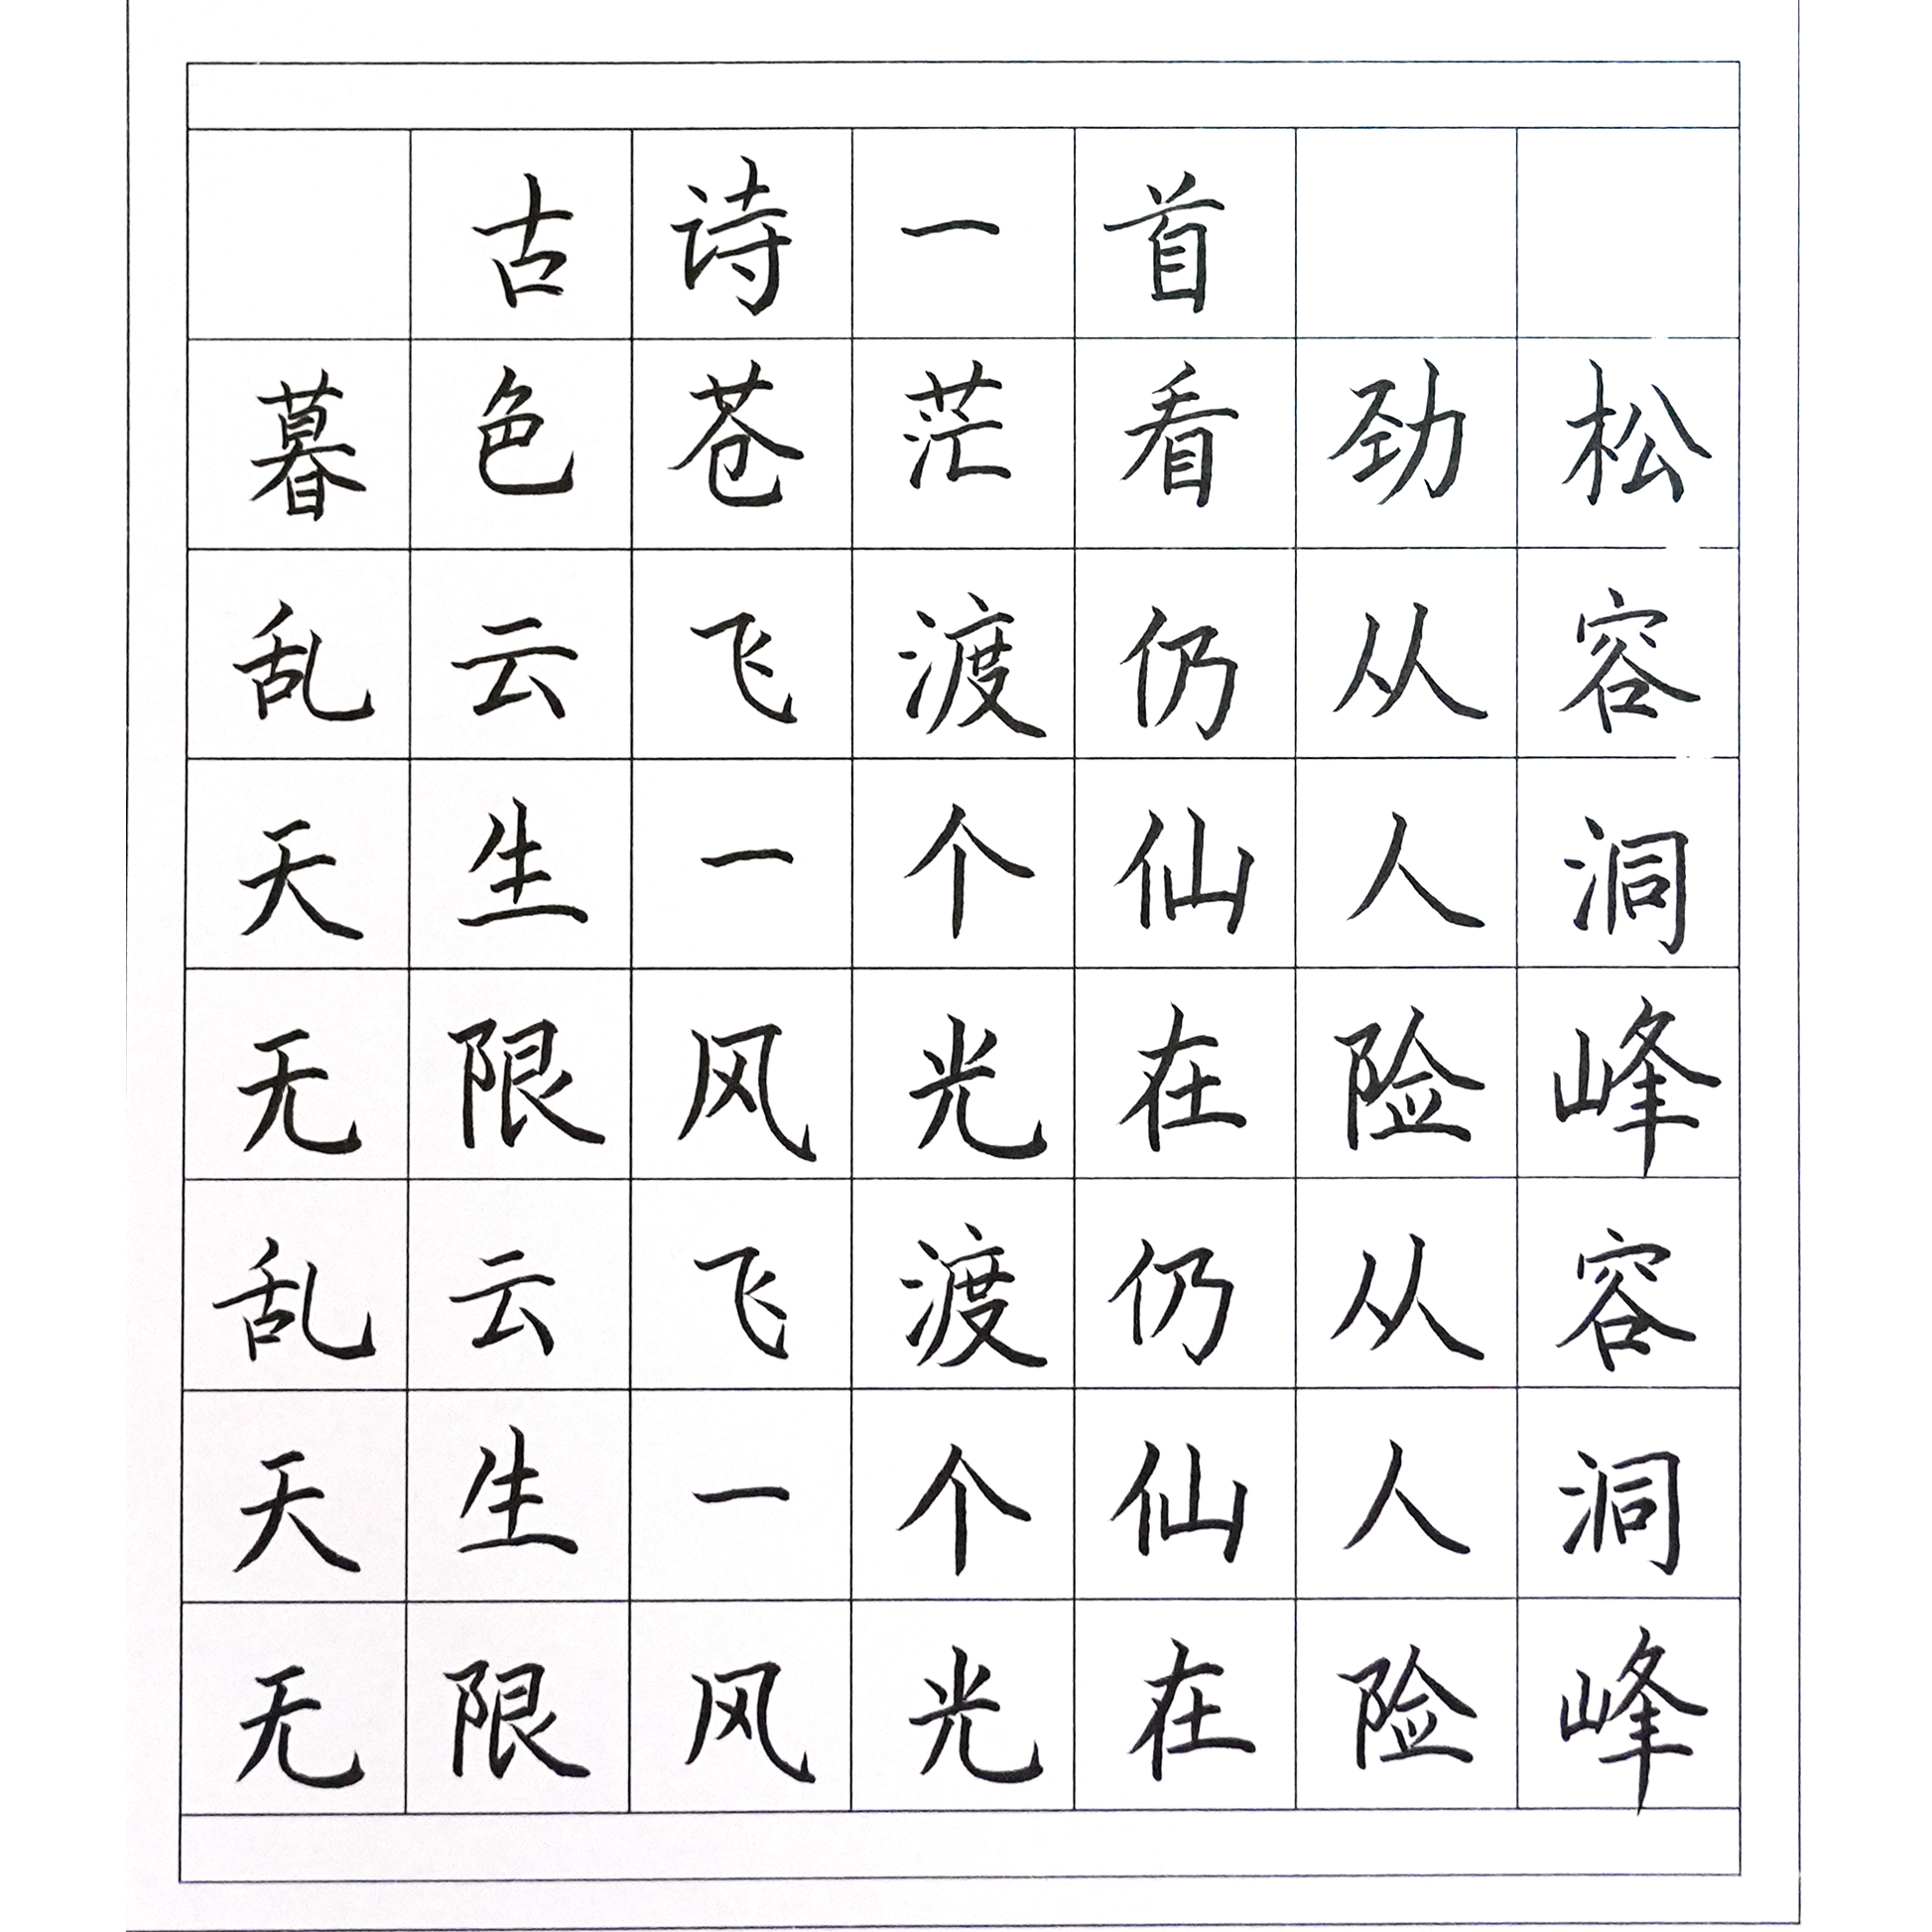 古诗一首
暮色苍茫看劲松
乱云飞渡仍从容
天生一个仙人洞
无限风光在险峰
乱云飞渡仍从容
天生一个仙人洞
无限风光在险峰